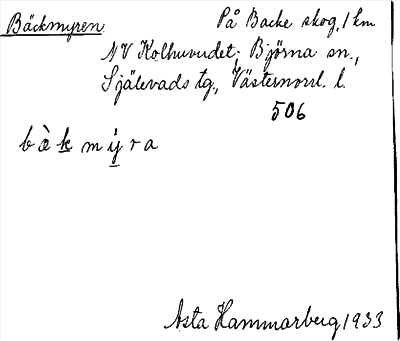 Bäckmyren
På Backe skog, 1 km
NV Kolhuvudet; Björna sn.,
Själevads tg., Västernorrl. l.
506
bὲk mýra
Asta Hammarberg 1933